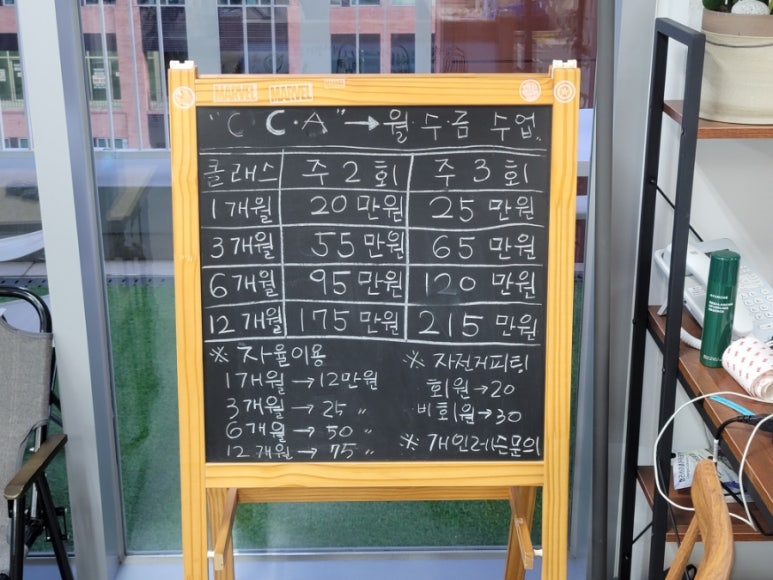 MARVEL MARVEL
"C C·A" → 월·수·금 수업
클래스 주 2 회 주 3 회
1개월 20 만원 25 만원
3개월 55만원 65 만원
6개월 95만원 120 만원
12개월 175만원 215 만원
※ 자율이용
1개월 → 12만원
3개월 → 25 〃
6개월 → 50 〃
12개월 → 75 〃
※ 자전거피팅
회원→20
비회원→30
※ 개인레슨문의